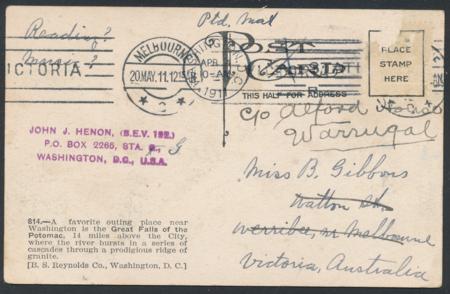 Ptd. Mat
Reading?
Margin?
VICTORIA
MELBOURNE
20.MAY.11.12
2
APR
1911
POST CARD
THIS HALF FOR ADDRESS
PLACE
STAMP
HERE
c/o Alford
Warrugal
JOHN J. HENON, (S.E.V. 192.)
P.O. BOX 2265, STA. G.,
WASHINGTON, D.C., U.S.A.
G
Miss B. Gibbons
Watton St
Werribee, nr Melbourne
Victoria, Australia
814.—A favorite outing place near
Washington is the Great Falls of the
Potomac, 14 miles above the City,
where the river bursts in a series of
cascades through a prodigious ridge of
granite.
[B. S. Reynolds Co., Washington, D. C.]